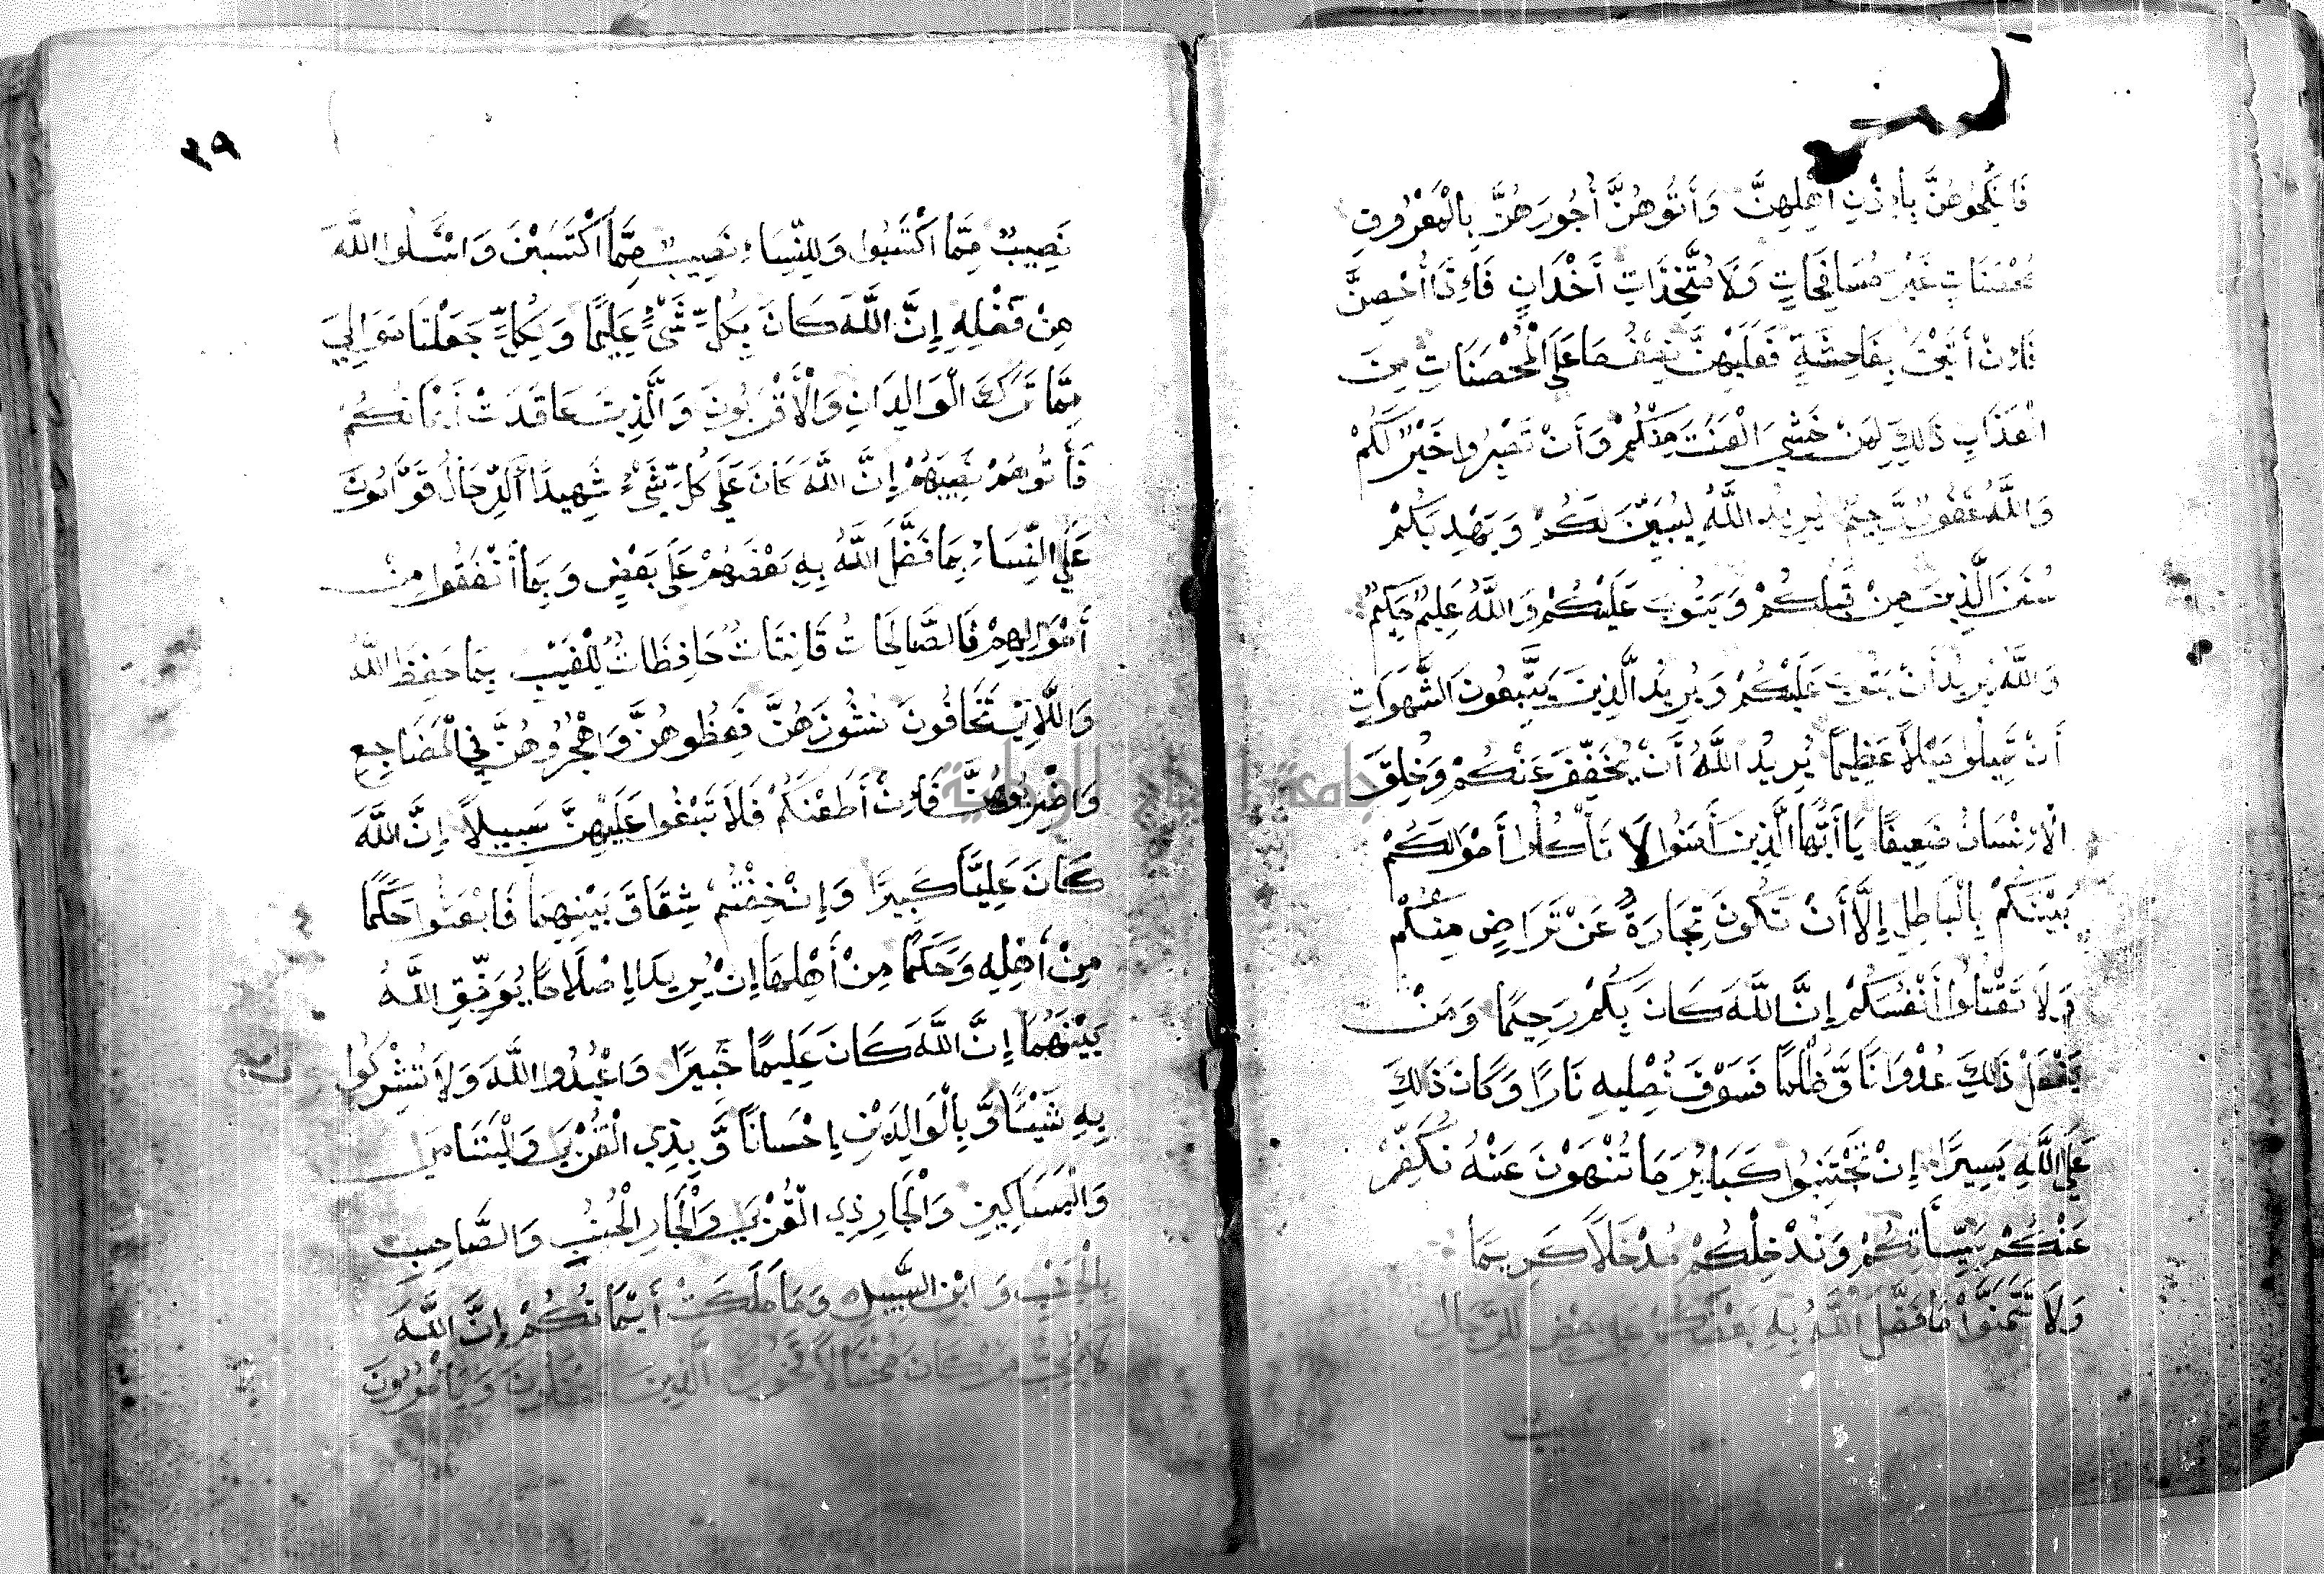 فَانْكِحُوهُنَّ بِإِذْنِ أَهْلِهِنَّ وَأَتُوهُنَّ أُجُورَهُنَّ بِالْمَعْرُوفِ
مُحْصَنَاتٍ غَيْرَ مُسَافِحَاتٍ وَلَا مُتَّخِذَاتِ أَخْدَانٍ فَإِذَا أُحْصِنَّ
فَإِنْ أَتَيْنَ بِفَاحِشَةٍ فَعَلَيْهِنَّ نِصْفُ مَا عَلَى الْمُحْصَنَاتِ مِنَ
الْعَذَابِ ذَلِكَ لِمَنْ خَشِيَ الْعَنَتَ مِنْكُمْ وَأَنْ تَصْبِرُوا خَيْرٌ لَكُمْ
وَاللَّهُ غَفُورٌ رَحِيمٌ يُرِيدُ اللَّهُ لِيُبَيِّنَ لَكُمْ وَيَهْدِيَكُمْ
سُنَنَ الَّذِينَ مِنْ قَبْلِكُمْ وَيَتُوبَ عَلَيْكُمْ وَاللَّهُ عَلِيمٌ حَكِيمٌ
وَاللَّهُ يُرِيدُ أَنْ يَتُوبَ عَلَيْكُمْ وَيُرِيدُ الَّذِينَ يَتَّبِعُونَ الشَّهَوَاتِ
أَنْ تَمِيلُوا مَيْلًا عَظِيمًا يُرِيدُ اللَّهُ أَنْ يُخَفِّفَ عَنْكُمْ وَخُلِقَ
الْإِنْسَانُ ضَعِيفًا يَا أَيُّهَا الَّذِينَ أَمَنُوا لَا تَأْكُلُوا أَمْوَالَكُمْ
بَيْنَكُمْ بِالْبَاطِلِ إِلَّا أَنْ تَكُونَ تِجَارَةً عَنْ تَرَاضٍ مِنْكُمْ
وَلَا تَقْتُلُوا أَنْفُسَكُمْ إِنَّ اللَّهَ كَانَ بِكُمْ رَحِيمًا وَمَنْ
يَفْعَلْ ذَلِكَ عُدْوَانًا وَّظُلْمًا فَسَوْفَ نُصْلِيهِ نَارًا وَكَانَ ذَلِكَ
عَلَى اللَّهِ يَسِيرًا إِنْ تَجْتَنِبُوا كَبَائِرَ مَا تُنْهَوْنَ عَنْهُ نُكَفِّرْ
عَنْكُمْ سَيِّأَتِكُمْ وَنُدْخِلْكُمْ مُدْخَلًا كَرِيمًا
وَلَا تَتَمَنَّوْا مَا فَضَّلَ اللَّهُ بِهِ بَعْضَكُمْ عَلَى بَعْضٍ لِلرِّجَالِ
نصيب
٣٩
نَصِيبٌ مِمَّا اكْتَسَبُوا وَلِلنِّسَاءِ نَصِيبٌ مِمَّا اكْتَسَبْنَ وَاسْئَلُوا اللَّهَ
مِنْ فَضْلِهِ إِنَّ اللَّهَ كَانَ بِكُلِّ شَيْءٍ عَلِيمًا وَلِكُلٍّ جَعَلْنَا مَوَالِيَ
مِمَّا تَرَكَ الْوَالِدَانِ وَالْأَقْرَبُونَ وَالَّذِينَ عَاقَدَتْ أَيْمَانُكُمْ
فَأَتُوهُمْ نَصِيبَهُمْ إِنَّ اللَّهَ كَانَ عَلَى كُلِّ شَيْءٍ شَهِيدًا أَلرِّجَالُ قَوَّامُونَ
عَلَى النِّسَاءِ بِمَا فَضَّلَ اللَّهُ بِهِ بَعْضَهُمْ عَلَى بَعْضٍ وَبِمَا أَنْفَقُوا مِنْ
أَمْوَالِهِمْ فَالصَّالِحَاتُ قَانِتَاتٌ حَافِظَاتٌ لِلْغَيْبِ بِمَا حَفِظَ اللَّهُ
وَاللَّاتِي تَخَافُونَ نُشُوزَهُنَّ فَعِظُوهُنَّ وَاهْجُرُوهُنَّ فِي الْمَضَاجِعِ
وَاضْرِبُوهُنَّ فَإِنْ أَطَعْنَكُمْ فَلَا تَبْغُوا عَلَيْهِنَّ سَبِيلًا إِنَّ اللَّهَ
كَانَ عَلِيًّا كَبِيرًا وَإِنْ خِفْتُمْ شِقَاقَ بَيْنِهِمَا فَابْعَثُوا حَكَمًا
مِنْ أَهْلِهِ وَحَكَمًا مِنْ أَهْلِهَا إِنْ يُرِيدَا إِصْلَاحًا يُوَفِّقِ اللَّهُ
بَيْنَهُمَا إِنَّ اللَّهَ كَانَ عَلِيمًا خَبِيرًا وَاعْبُدُوا اللَّهَ وَلَا تُشْرِكُوا
بِهِ شَيْئًا وَّبِالْوَالِدَيْنِ إِحْسَانًا وَّبِذِي الْقُرْبَى وَالْيَتَامَى
وَالْمَسَاكِينِ وَالْجَارِ ذِي الْقُرْبَى وَالْجَارِ الْجُنُبِ وَالصَّاحِبِ
بِالْجَنْبِ وَابْنِ السَّبِيلِ وَمَا مَلَكَتْ أَيْمَانُكُمْ إِنَّ اللَّهَ
لَا يُحِبُّ مَنْ كَانَ مُخْتَالًا فَخُورًا الَّذِينَ يَبْخَلُونَ وَيَأْمُرُونَ